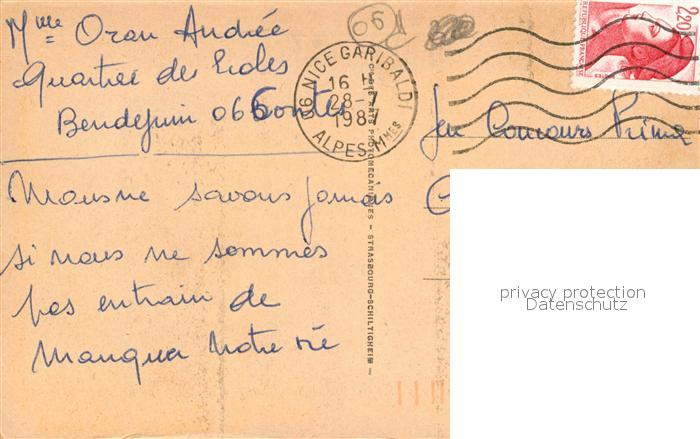 Mme Oran Andrée
Quartier des Ecoles
Bendejuin 066 Contes
06
06 NICE GARIBALDI
16 H
28-7
1987
ALPES-Mmes
2,20
REPUBLIQUE FRANCAISE
POSTES
Jeu Concours Prima
Nous ne savons jamais
si nous ne sommes
pas entrain de
Manquer Notre vie
PHOTOMECANIQUES - STRASBOURG-SCHILTIGHEIM -
privacy protection
Datenschutz